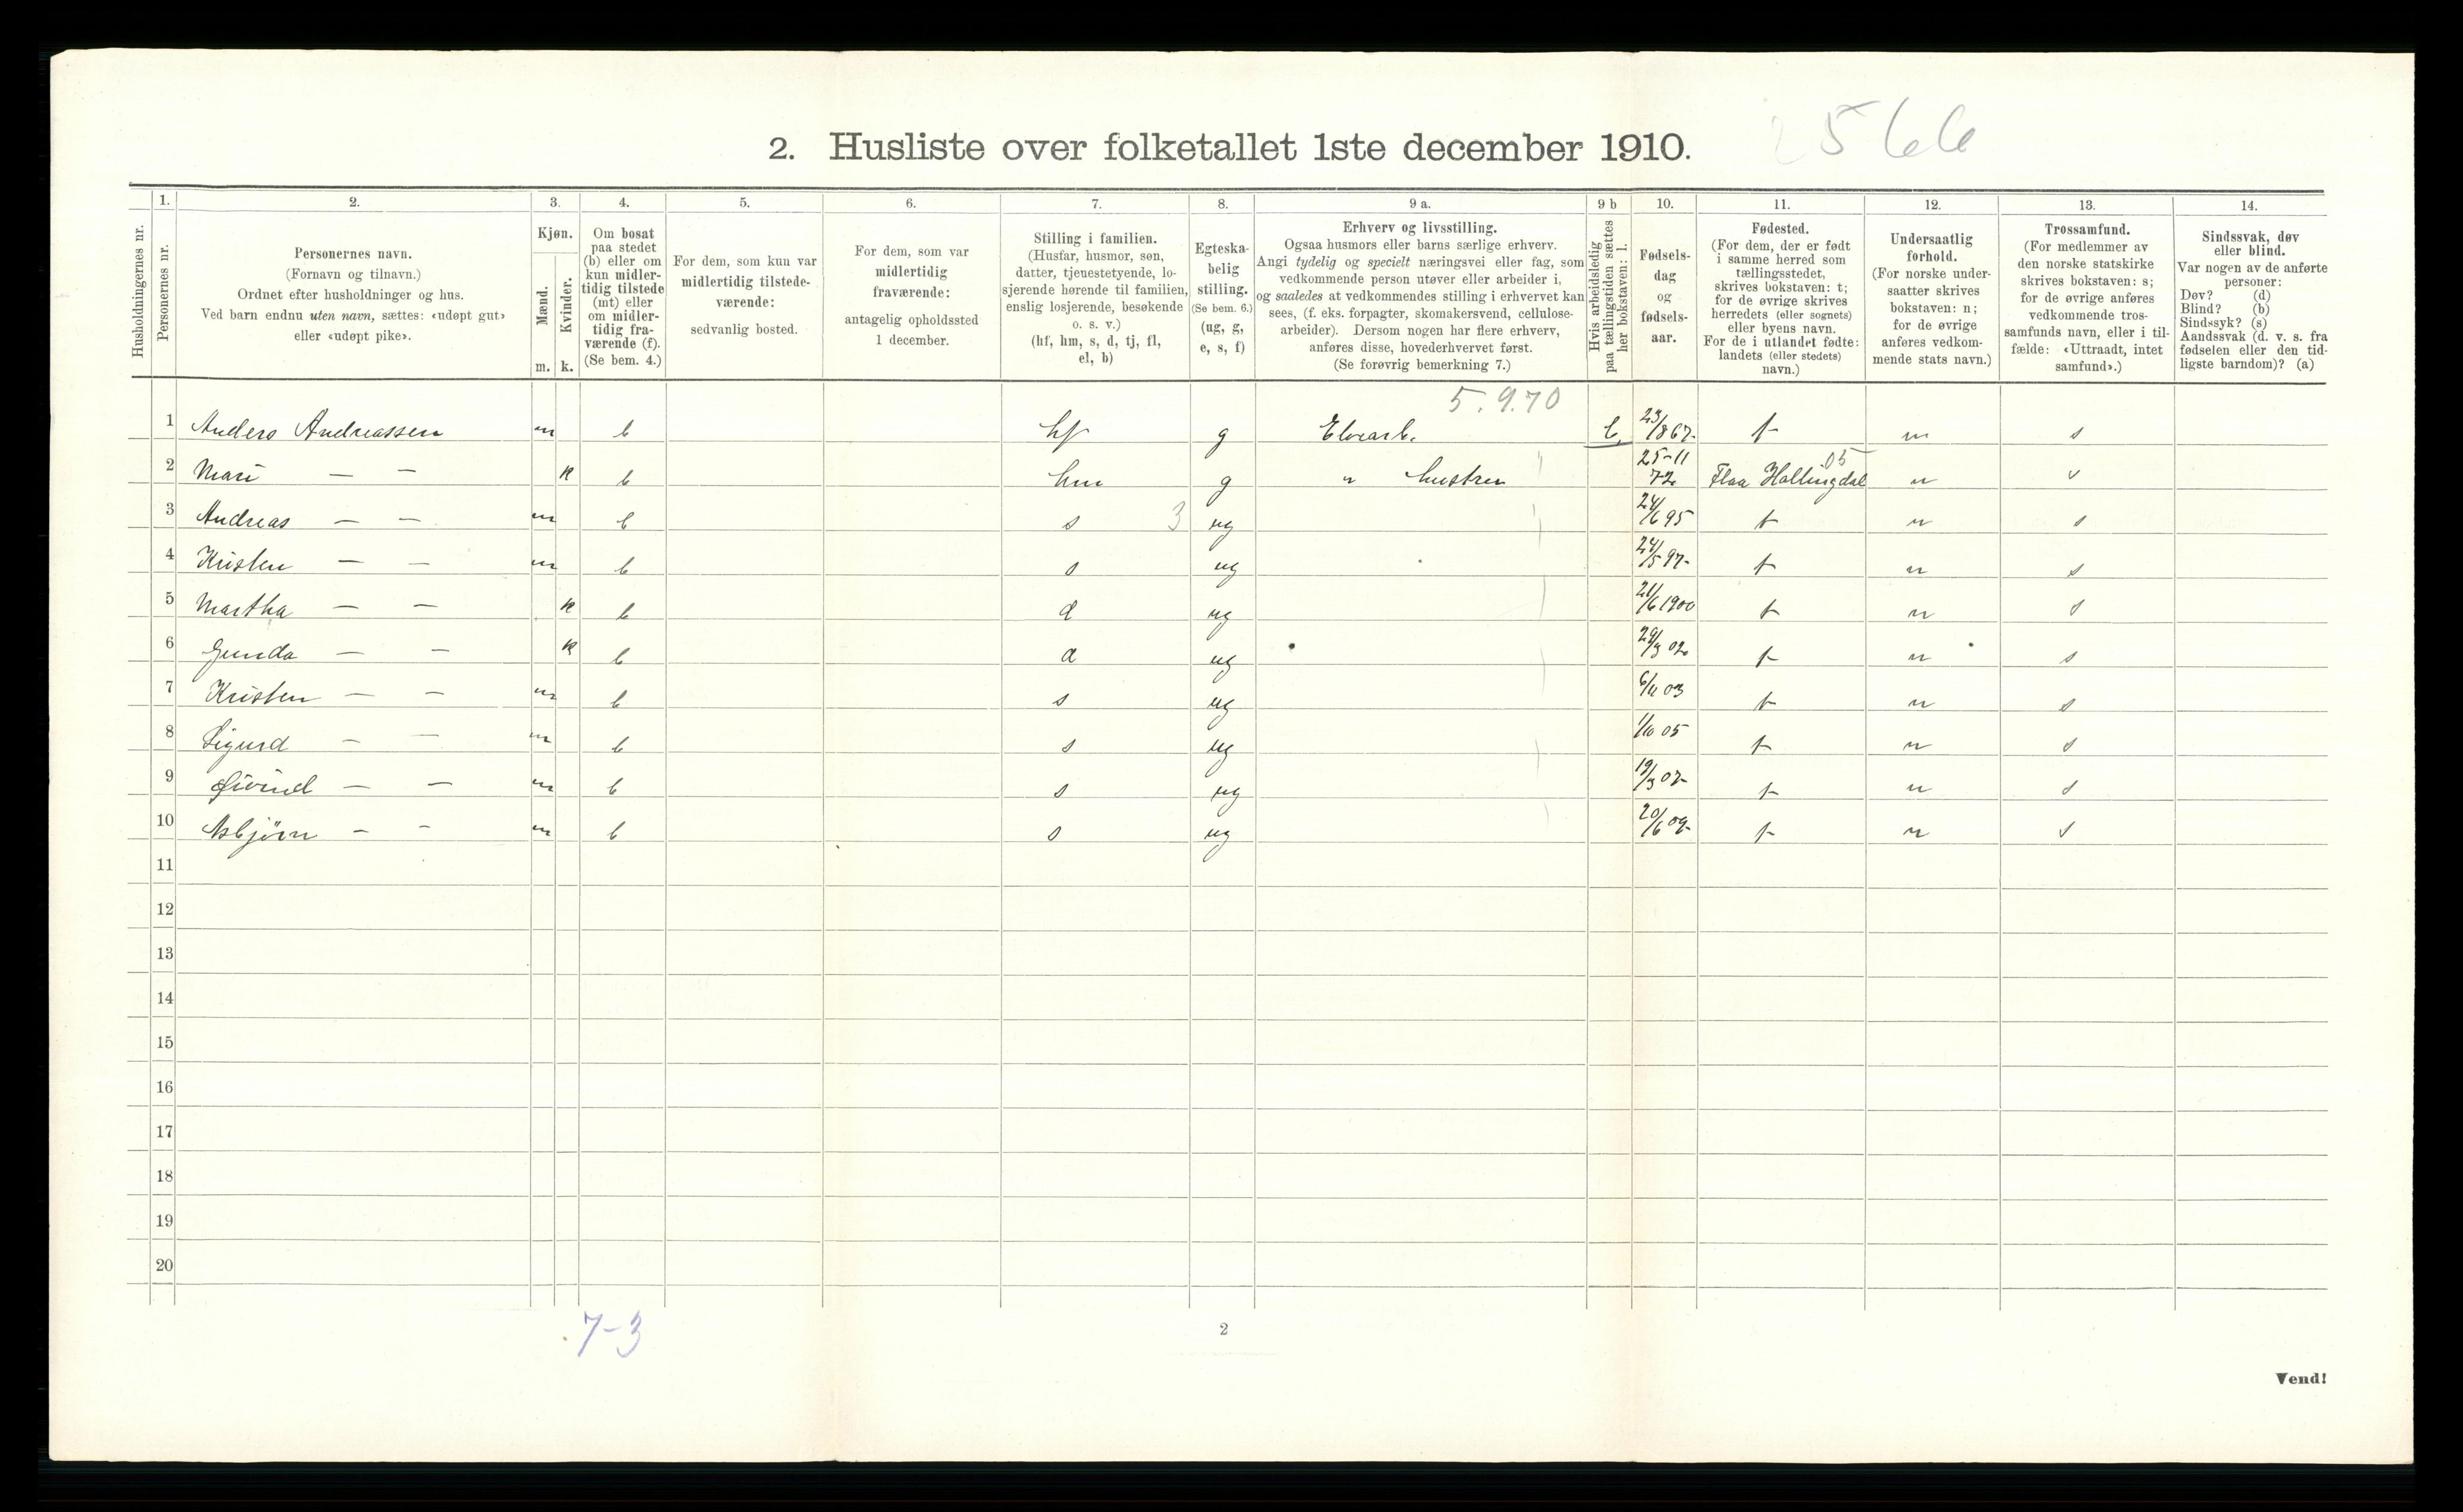 2566
2. Husliste over folketallet 1ste december 1910.
1. 2. 3. 4. 5. 6. 7. 8. 9 a. 9 b 10. 11. 12. 13. 14.
Husholdningernes nr.
Personernes nr.
Personernes navn.
(Fornavn og tilnavn.)
Ordnet efter husholdninger og hus.
Ved barn endnu uten navn, sættes: «udøpt gut»
eller «udøpt pike».
Kjøn.
Mænd.
Kvinder.
m. k.
Om bosat
paa stedet
(b) eller om
kun midler-
tidig tilstede
(mt) eller
om midler-
tidig fra-
værende (f).
(Se bem. 4.)
For dem, som kun var
midlertidig tilstede-
værende:
sedvanlig bosted.
For dem, som var
midlertidig
fraværende:
antagelig opholdssted
1 december.
Stilling i familien.
(Husfar, husmor, søn,
datter, tjenestetyende, lo-
sjerende hørende til familien,
enslig losjerende, besøkende
o. s. v.)
(hf, hm, s, d, tj, fl,
el, b)
Egteska-
belig
stilling.
(Se bem. 6.)
(ug, g,
e, s, f)
Erhverv og livsstilling.
Ogsaa husmors eller barns særlige erhverv.
Angi tydelig og specielt næringsvei eller fag, som
vedkommende person utøver eller arbeider i,
og saaledes at vedkommendes stilling i erhvervet kan
sees, (f. eks. forpagter, skomakersvend, cellulose-
arbeider). Dersom nogen har flere erhverv,
anføres disse, hovederhvervet først.
(Se forøvrig bemerkning 7.)
Hvis arbeidsledig
paa tællingstiden sættes
her bokstaven: l.
Fødsels-
dag
og
fødsels-
aar.
Fødested.
(For dem, der er født
i samme herred som
tællingsstedet,
skrives bokstaven: t;
for de øvrige skrives
herredets (eller sognets)
eller byens navn.
For de i utlandet fødte:
landets (eller stedets)
navn.)
Undersaatlig
forhold.
(For norske under-
saatter skrives
bokstaven: n;
for de øvrige
anføres vedkom-
mende stats navn.)
Trossamfund.
(For medlemmer av
den norske statskirke
skrives bokstaven: s;
for de øvrige anføres
vedkommende tros-
samfunds navn, eller i til-
fælde: «Uttraadt, intet
samfund».)
Sindssvak, døv
eller blind.
Var nogen av de anførte
personer:
Døv? (d)
Blind? (b)
Sindssyk? (s)
Aandssvak (d. v. s. fra
fødselen eller den tid-
ligste barndom)? (a)
5.9.70
1 Anders Andreassen m b hf g Elvearb. l. 867 t n s
05
2 Mari — — k b hm g " hustru 25-11 72 Flaa Hallingdal n s
3 Andreas — — m b s 3 ug 24/6 95 t n s
4 Kristen — — m b s ug 24/5 97 t n s
5 Martha — — k b d ug 21/6 1900 t n s
6 Gunda — — k b d ug 29/3 02 t n s
7 Kristen — — m b s ug 6/11 03 t n s
8 Sigurd — — m b s ug 1/10 05 t n s
9 Øivind — — m b s ug 19/3 07 t n s
10 Asbjörn — — m b s ug 20/6 09 t n s
11
12
13
14
15
16
17
18
19
20
7-3
2
Vend!